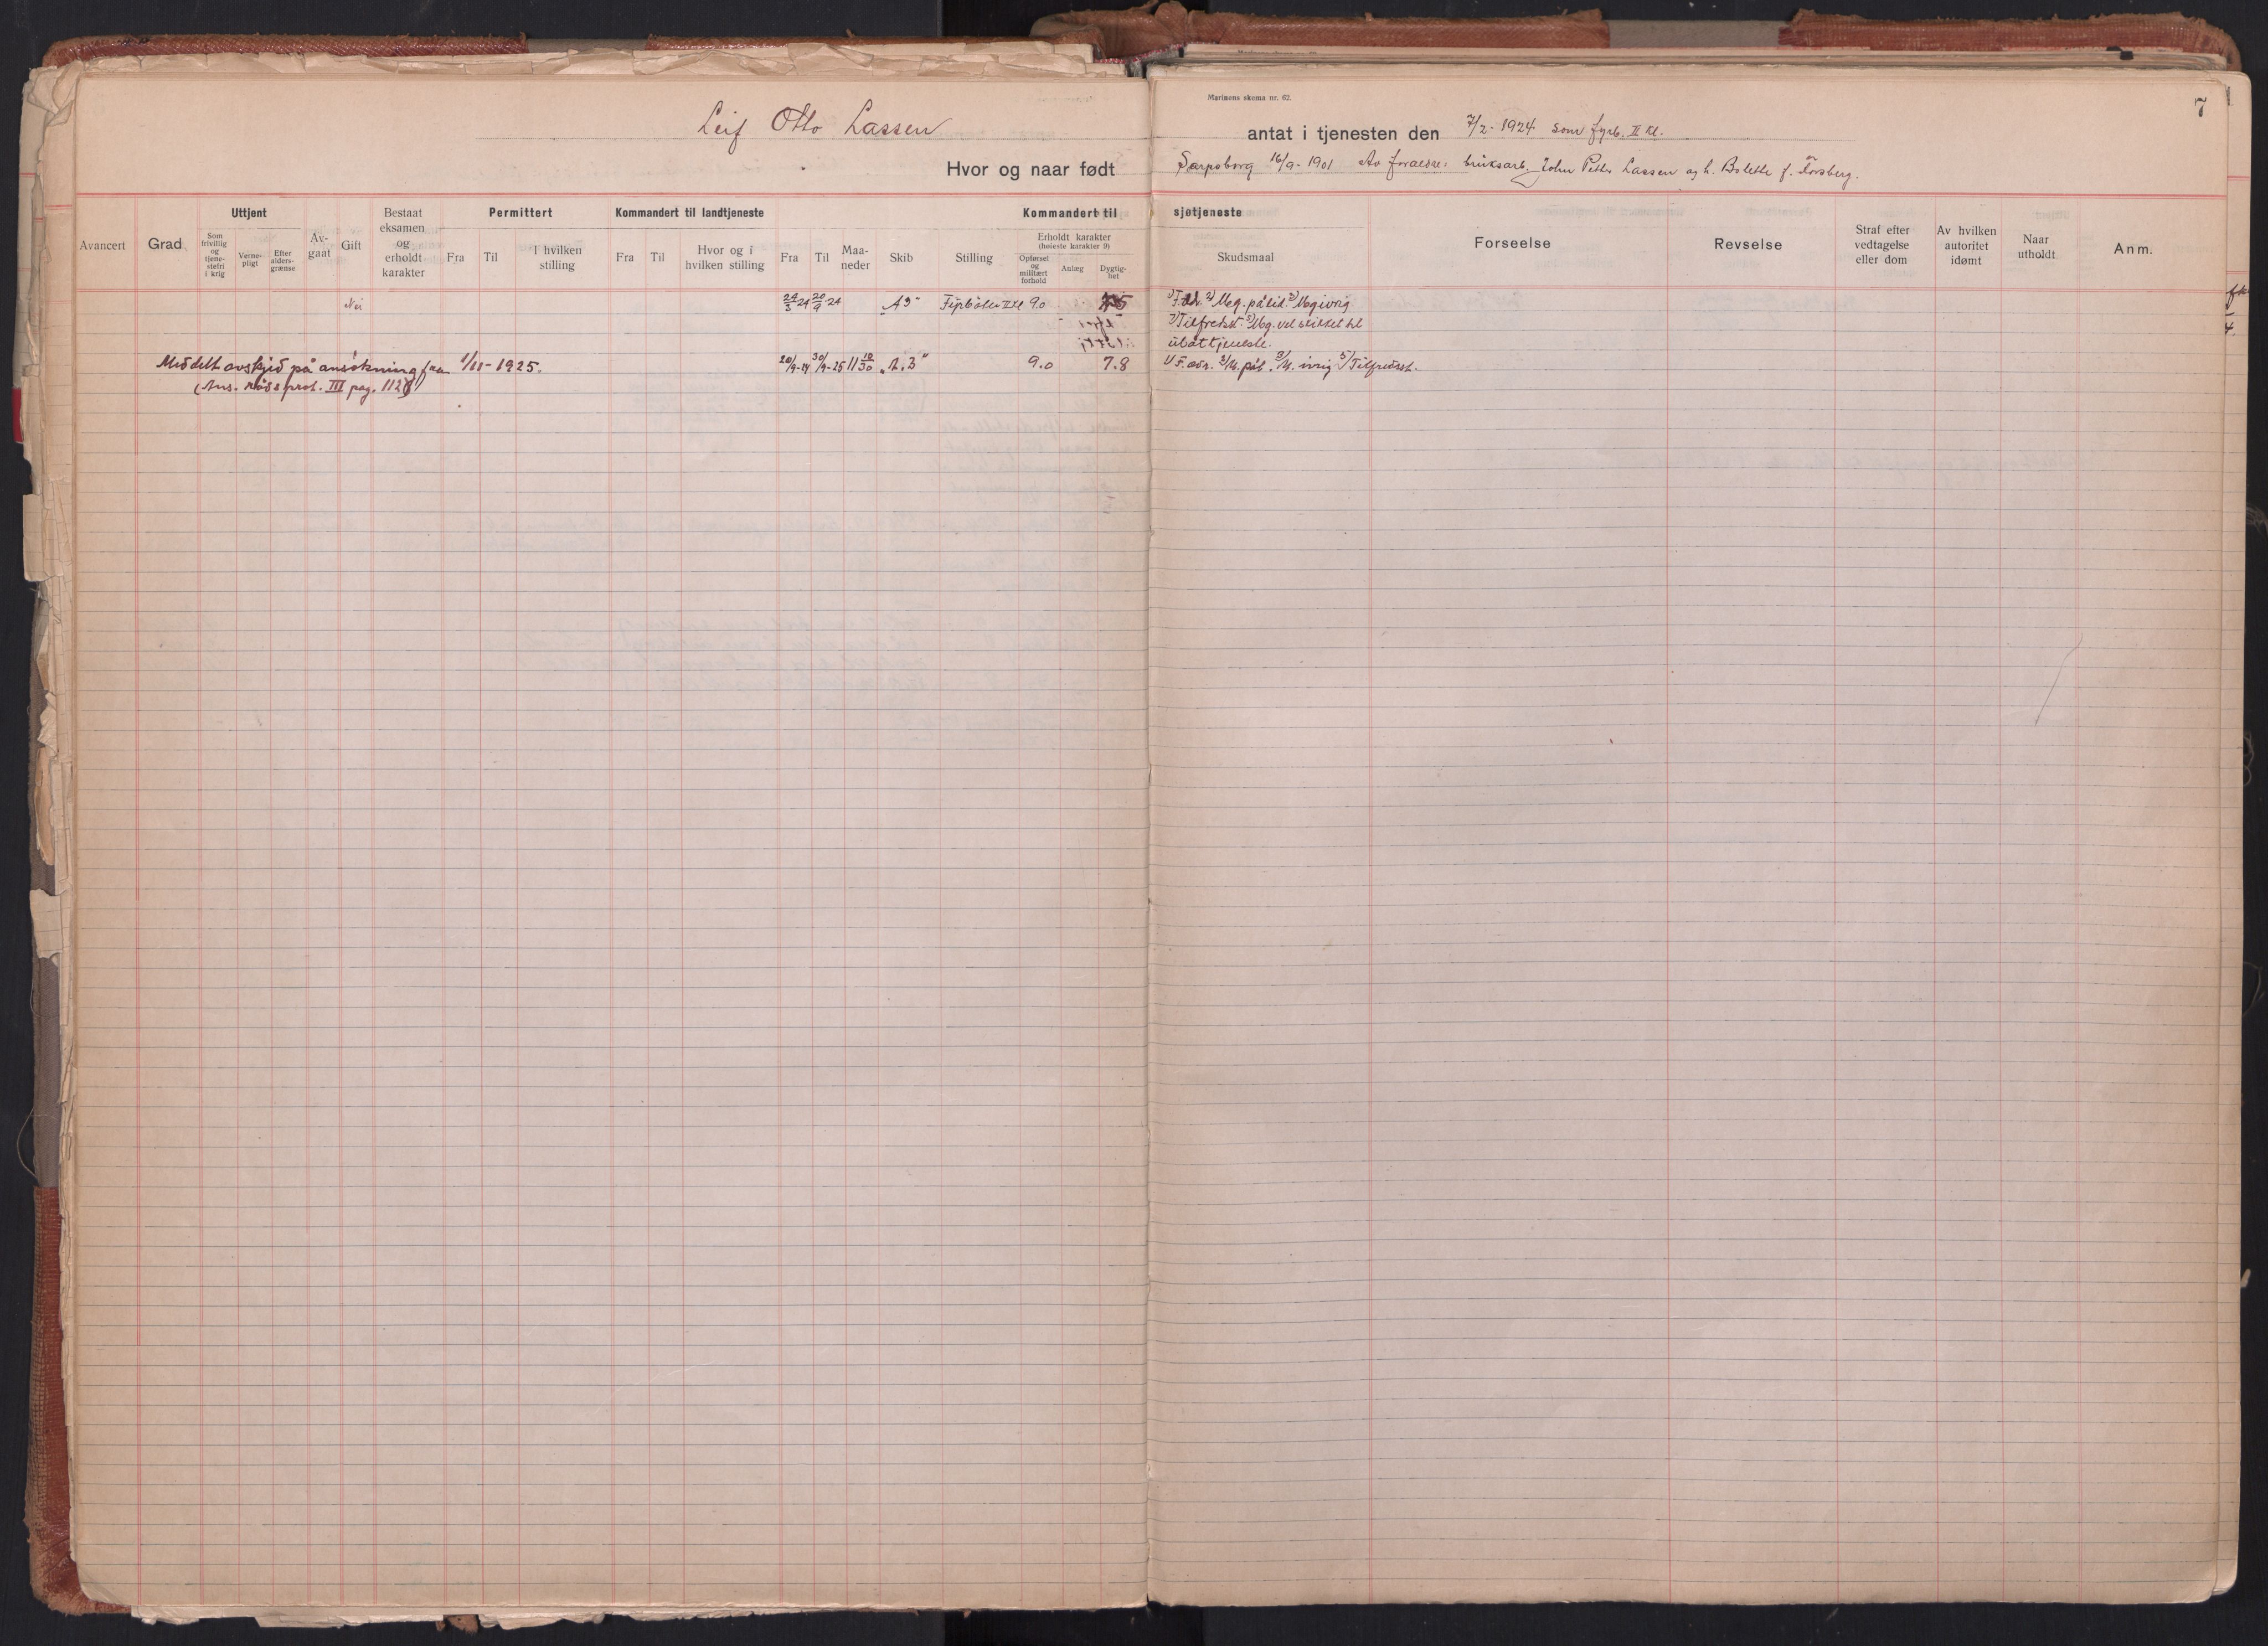 Marinens skema nr. 62.
7
Leif Otto Lassen antat i tjenesten den 7/2-1924 som fyrb. II kl.
Hvor og naar født Sarpsborg 16/9-1901 Av foraeldre: bruksarb. John Petter Lassen og h. Bolette f. Forsberg.
Avancert
Grad
Uttjent
Som frivillig og tjenestefri i krig
Vernepligt
Efter aldersgrænse
Avgaat
Gift
Bestaat eksamen og erholdt karakter
Permittert
Fra
Til
I hvilken stilling
Kommandert til landtjeneste
Fra
Til
Hvor og i hvilken stilling
Kommandert til sjøtjeneste
Fra
Til
Maaneder
Skib
Stilling
Erholdt karakter
(høieste karakter 9)
Opførsel og militært forhold
Anlæg
Dygtighet
Skudsmaal
Forseelse
Revselse
Straf efter vedtagelse eller dom
Av hvilken autoritet idømt
Naar utholdt
Anm.
Nei 24/3 24 20/9 24 "A3" Fyrbøter II kl 9.0 7.5 1) F. ædr. 2) Meg. pålid. 3) Meg ivrig
Tilfredsst. 5) Meg. vel skikket til
ubåttjeneste.
Meddelt avskjed på ansökning fra 1/11-1925. 20/9-24 30/9-25 11 10/30 "A.3" 9.0 7.8 1) F. ædr. 2) M. pål. 3) M. ivrig 5) Tilfredsst.
(Ans. råds prot. III pag. 1128)